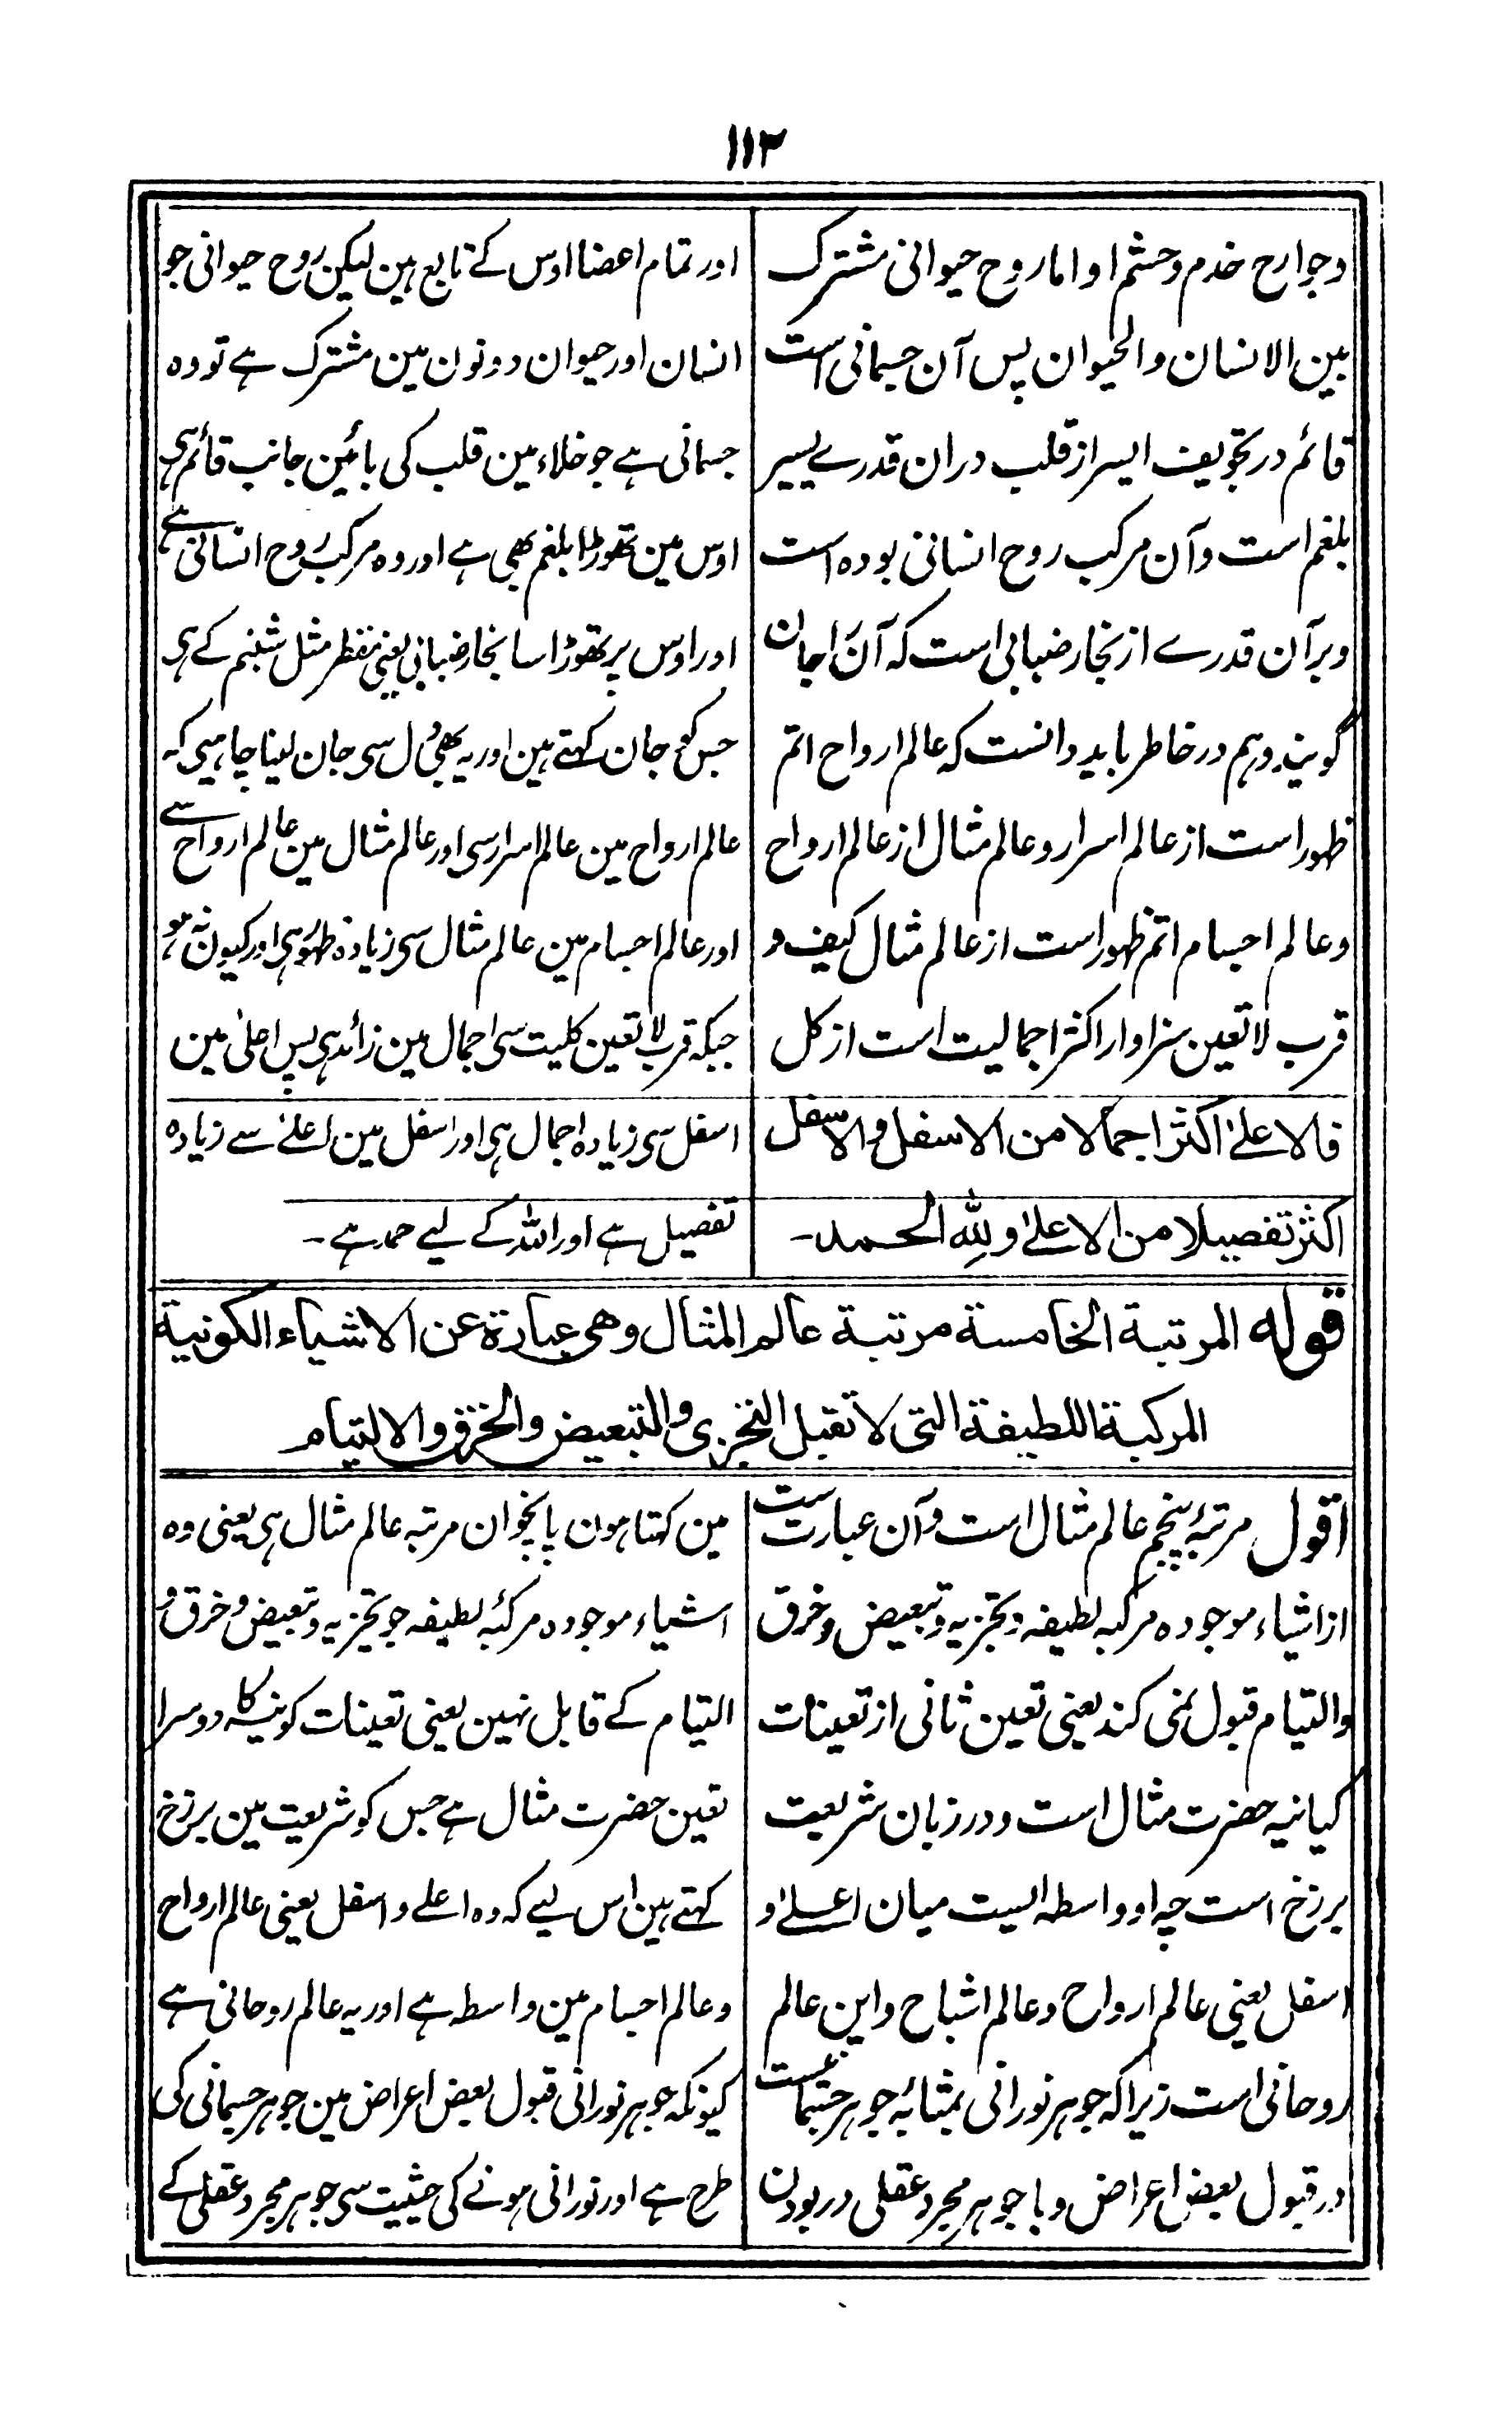 ۱۱۳
وجوارح خدم وحشم او اما روح حیوانی مشترک
بین الانسان والحیوان پس آن جسمانی است
قائم در تجویف ایسر از قلب دران قدرے یسیر
بلغم است وآن مرکب روح انسانی بوده است
وبرآن قدرے از بخار ضبابی است که آنرا جان
گویند وہم در خاطر باید دانست که عالم ارواح اتم
ظہور است از عالم اسرار وعالم مثال از عالم ارواح
وعالم اجسام اتم ظہور است از عالم مثال کیف و
قرب لا تعین سزاوار اکثر اجمالیت است از کل
فالاعلیٰ اکثر اجمالا من الاسفل والاسفل
اکثر تفصیلا من الاعلیٰ وللّٰه الحمد۔
اور تمام اعضا اوس کے تابع ہین لیکن روح حیوانی جو
انسان اور حیوان دونون مین مشترک ہے تو وہ
جسمانی ہے جو خلاء مین قلب کی بائین جانب قائم ہی
اوس مین تھوڑا بلغم بھی ہے اور وہ مرکب روح انسانی ہے
اور اوس پر تھوڑا سا بخار ضبابی یعنی مقطر مثل شبنم کے ہی
جس کو جان کہتے ہین اور یہ بھی دل سی جان لینا چاہیی کہ
عالم ارواح مین عالم اسرار سی اور عالم مثال مین عالم ارواح سے
اور عالم اجسام مین عالم مثال سی زیادہ ظہور ہی اور کیون نہ ہو
جبکہ قرب لا تعین کلیت سی اجمال مین زائد ہی پس اعلیٰ مین
اسفل سی زیادہ اجمال ہی اور اسفل مین اعلےٰ سے زیادہ
تفصیل ہے اور اللہ کے لیے حمد ہے۔
قوله المرتبة الخامسة مرتبة عالم المثال وهی عبارة عن الاشیاء الکونیة
المرکبة اللطیفة التی لا تقبل التجزی والتبعیض والخرق والالتیام
اقول مرتبۂ پنجم عالم مثال است وآن عبارت است
از اشیاء موجوده مرکبہ لطیفہ که تجزیہ وتبعیض وخرق
والتیام قبول نمی کند یعنی تعین ثانی از تعینات
کیانیہ حضرت مثال است ودر زبان شریعت
برزخ است چہ او واسطہ ایست میان اعلےٰ و
اسفل یعنی عالم ارواح وعالم اشباح واین عالم
روحانی است زیراکہ جوہر نورانی بمثابۂ جوہر جسمانیست
در قبول بعض اعراض وبا جوہر مجرد عقلی در بودن
مین کہتا ہون پانچوان مرتبہ عالم مثال ہی یعنی وہ
اشیاء موجودہ مرکبۂ لطیفہ جو تجزیہ وتبعیض وخرق و
التیام کے قابل نہین یعنی تعینات کونیہ کا دوسرا
تعین حضرت مثال ہے جس کو شریعت مین برزخ
کہتے ہین اس لیے کہ وہ اعلے واسفل یعنی عالم ارواح
وعالم اجسام مین واسطہ ہے اور یہ عالم روحانی ہے
کیونکہ جوہر نورانی قبول بعض اعراض مین جوہر جسمانی کی
طرح ہے اور نورانی ہونے کی حیثیت سی جوہر مجرد عقلی کے